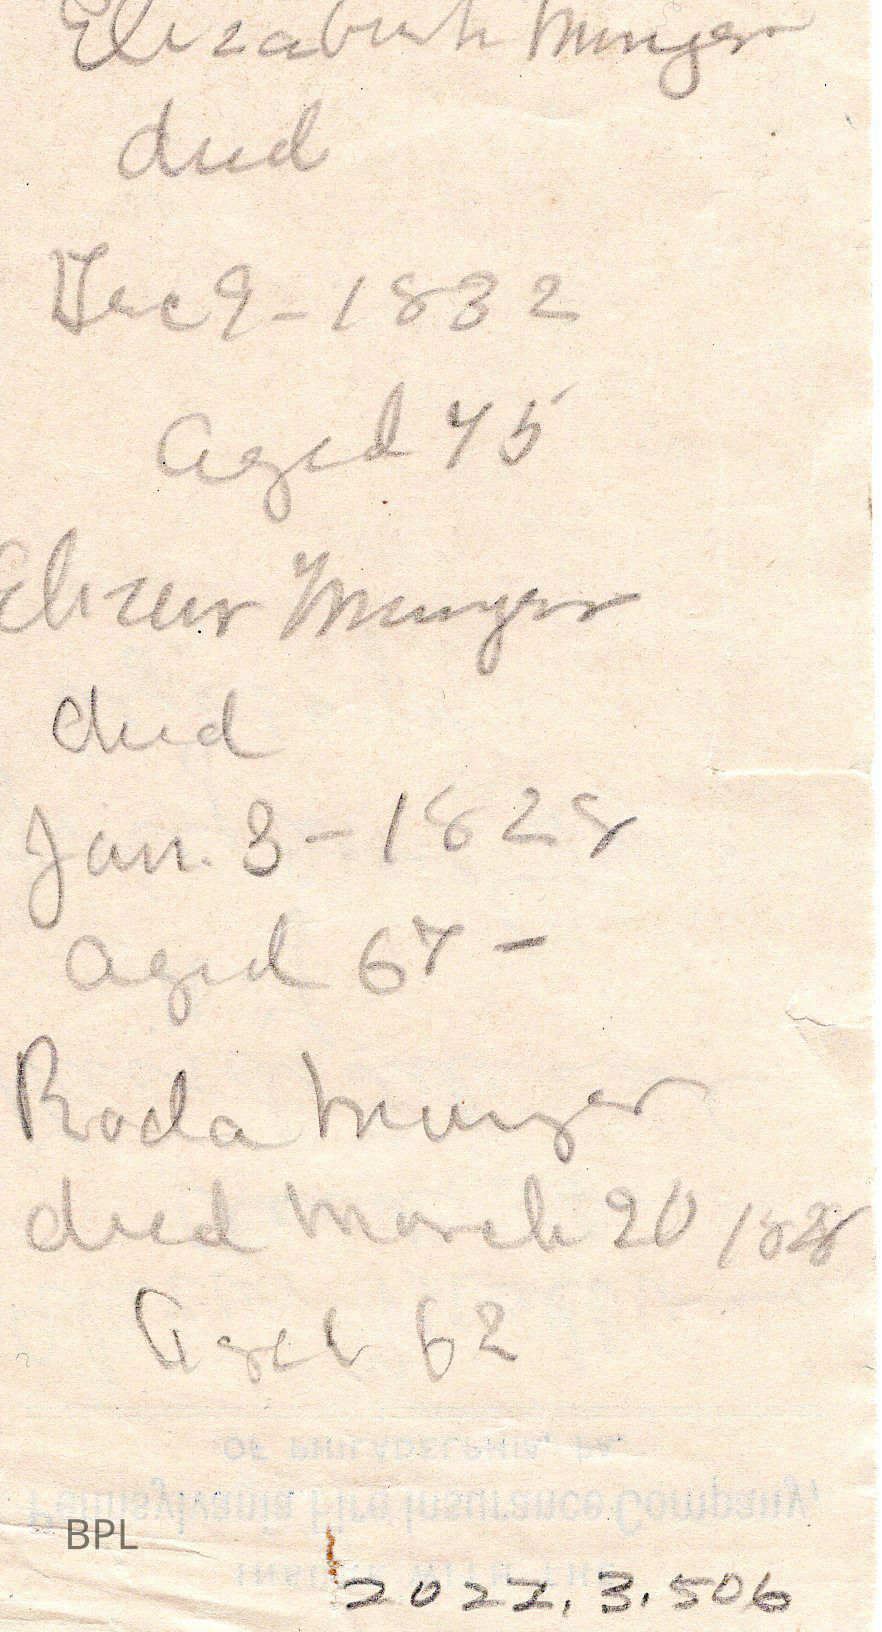 Elizabeth Munger
died
Dec 9 - 1832
aged 45
Elizur Munger
died
Jan. 3 - 1828
aged 67 -
Roda Munger
died March 20 1828
Aged 62
OF PHILADELPHIA, PA.
Pennsylvania Fire Insurance Company,
INSURE WITH THE
BPL
2022.3.506